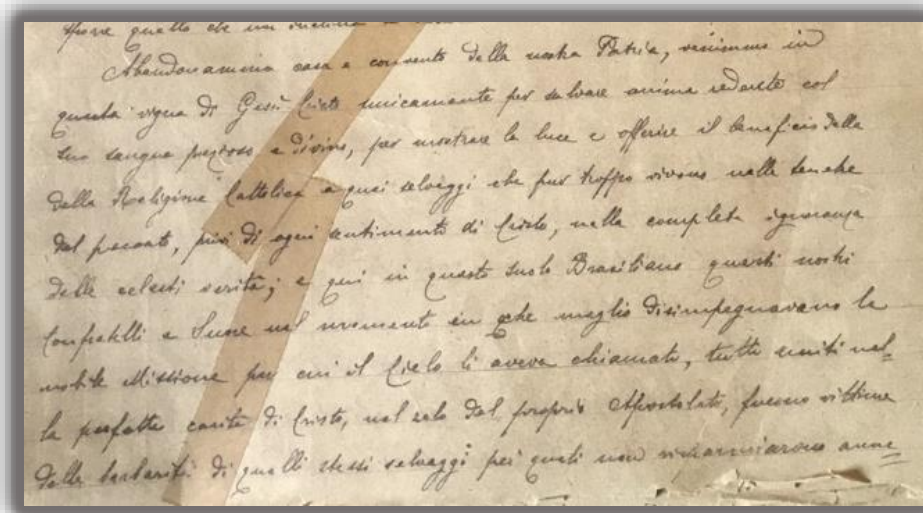 quello che
Abandonammo casa e convento della nostra Patria, venimmo in
questa vigna di Gesù Cristo unicamente per salvare anime redente col
suo sangue prezioso e divino, per mostrare la luce e offerire il beneficio della
della Religione Cattolica a quei selvaggi che pur troppo vivono nelle tenebre
del peccato, privi di ogni sentimento di Cristo, nella completa ignoranza
delle celesti verità; e qui in questo suolo Brasiliano questi nostri
Confratelli e Suore nel momento in che meglio disimpegnavano la
nobile Missione per cui il Cielo li aveva chiamati, tutti uniti nel=
la perfetta carità di Cristo, nel zelo del proprio Apostolato, furono vittime
della barbarità di quelli stessi selvaggi pei quali non risparmiarono anne=